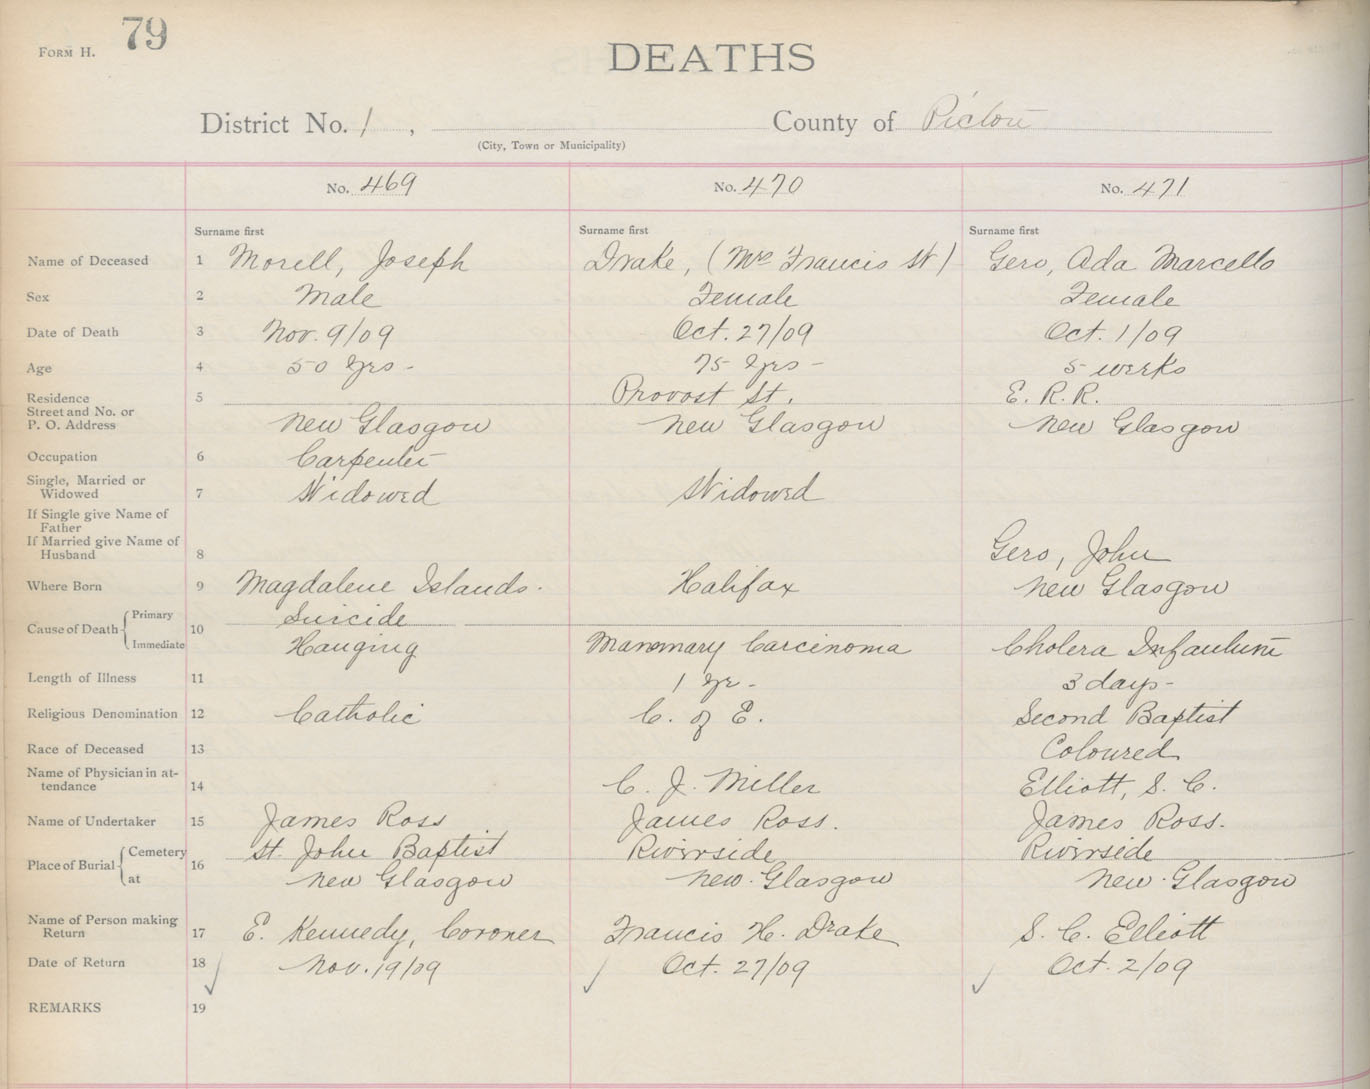 FORM H.
79
DEATHS
District No. 1 , County of Pictou
(City, Town or Municipality)
No. 469 No. 470 No. 471
Surname first Surname first Surname first
Name of Deceased 1 Morell, Joseph Drake, (Mrs Francis W) Gero, Ada Marcello
Sex 2 Male Female Female
Date of Death 3 Nov. 9/09 Oct. 27/09 Oct. 1/09
Age 4 50 yrs - 75 yrs - 5 weeks
Residence 5 Provost St. E. R. R.
Street and No. or
P. O. Address New Glasgow New Glasgow New Glasgow
Occupation 6 Carpenter
Single, Married or
Widowed 7 Widowed Widowed
If Single give Name of
Father
If Married give Name of
Husband 8 Gero, John
Where Born 9 Magdalene Islands. Halifax New Glasgow
Primary Suicide
Cause of Death 10
Immediate Hanging Mammary Carcinoma Cholera Infantum
Length of Illness 11 1 yr - 3 days -
Religious Denomination 12 Catholic C. of E. Second Baptist
Race of Deceased 13 Coloured
Name of Physician in at-
tendance 14 C. J. Miller Elliott, S. C.
Name of Undertaker 15 James Ross James Ross. James Ross.
Cemetery St. John Baptist Riverside Riverside
Place of Burial 16
at New Glasgow New Glasgow New Glasgow
Name of Person making
Return 17 E. Kennedy, Coroner Francis H. Drake S. C. Elliott
Date of Return 18 Nov. 19/09 Oct. 27/09 Oct. 2/09
REMARKS 19